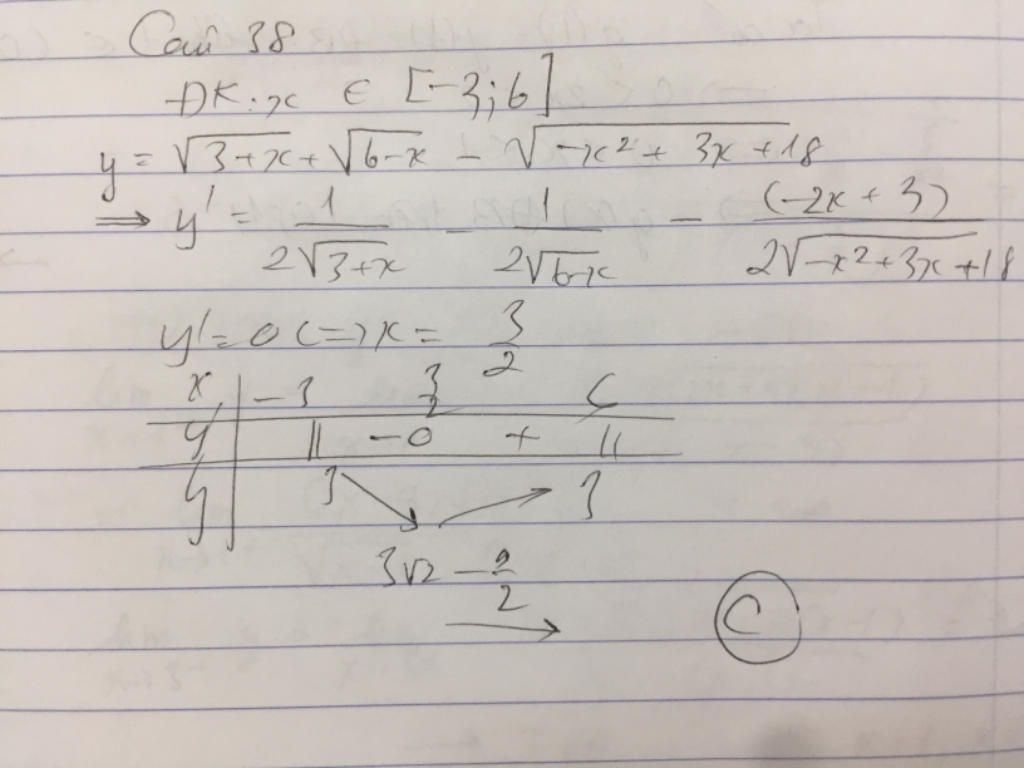 Câu 38
ĐK: x ∈ [-3; 6]
y = √(3+x) + √(6-x) - √(-x² + 3x + 18)
⟹ y' = 1/(2√(3+x)) - 1/(2√(6-x)) - (-2x + 3)/(2√(-x²+3x+18))
y' = 0 <=> x = 3/2
x | -3 3/2 6
y' | || - 0 + ||
y | 3 ↘ ↗ 3
3√2 - 9/2
→ C